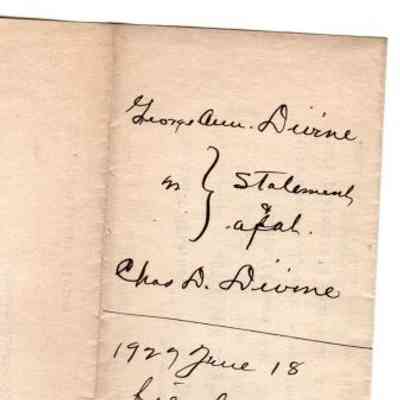 George Ann. Divine
vs } Statement
& afat.
Chas D. Divine
1927 June 18